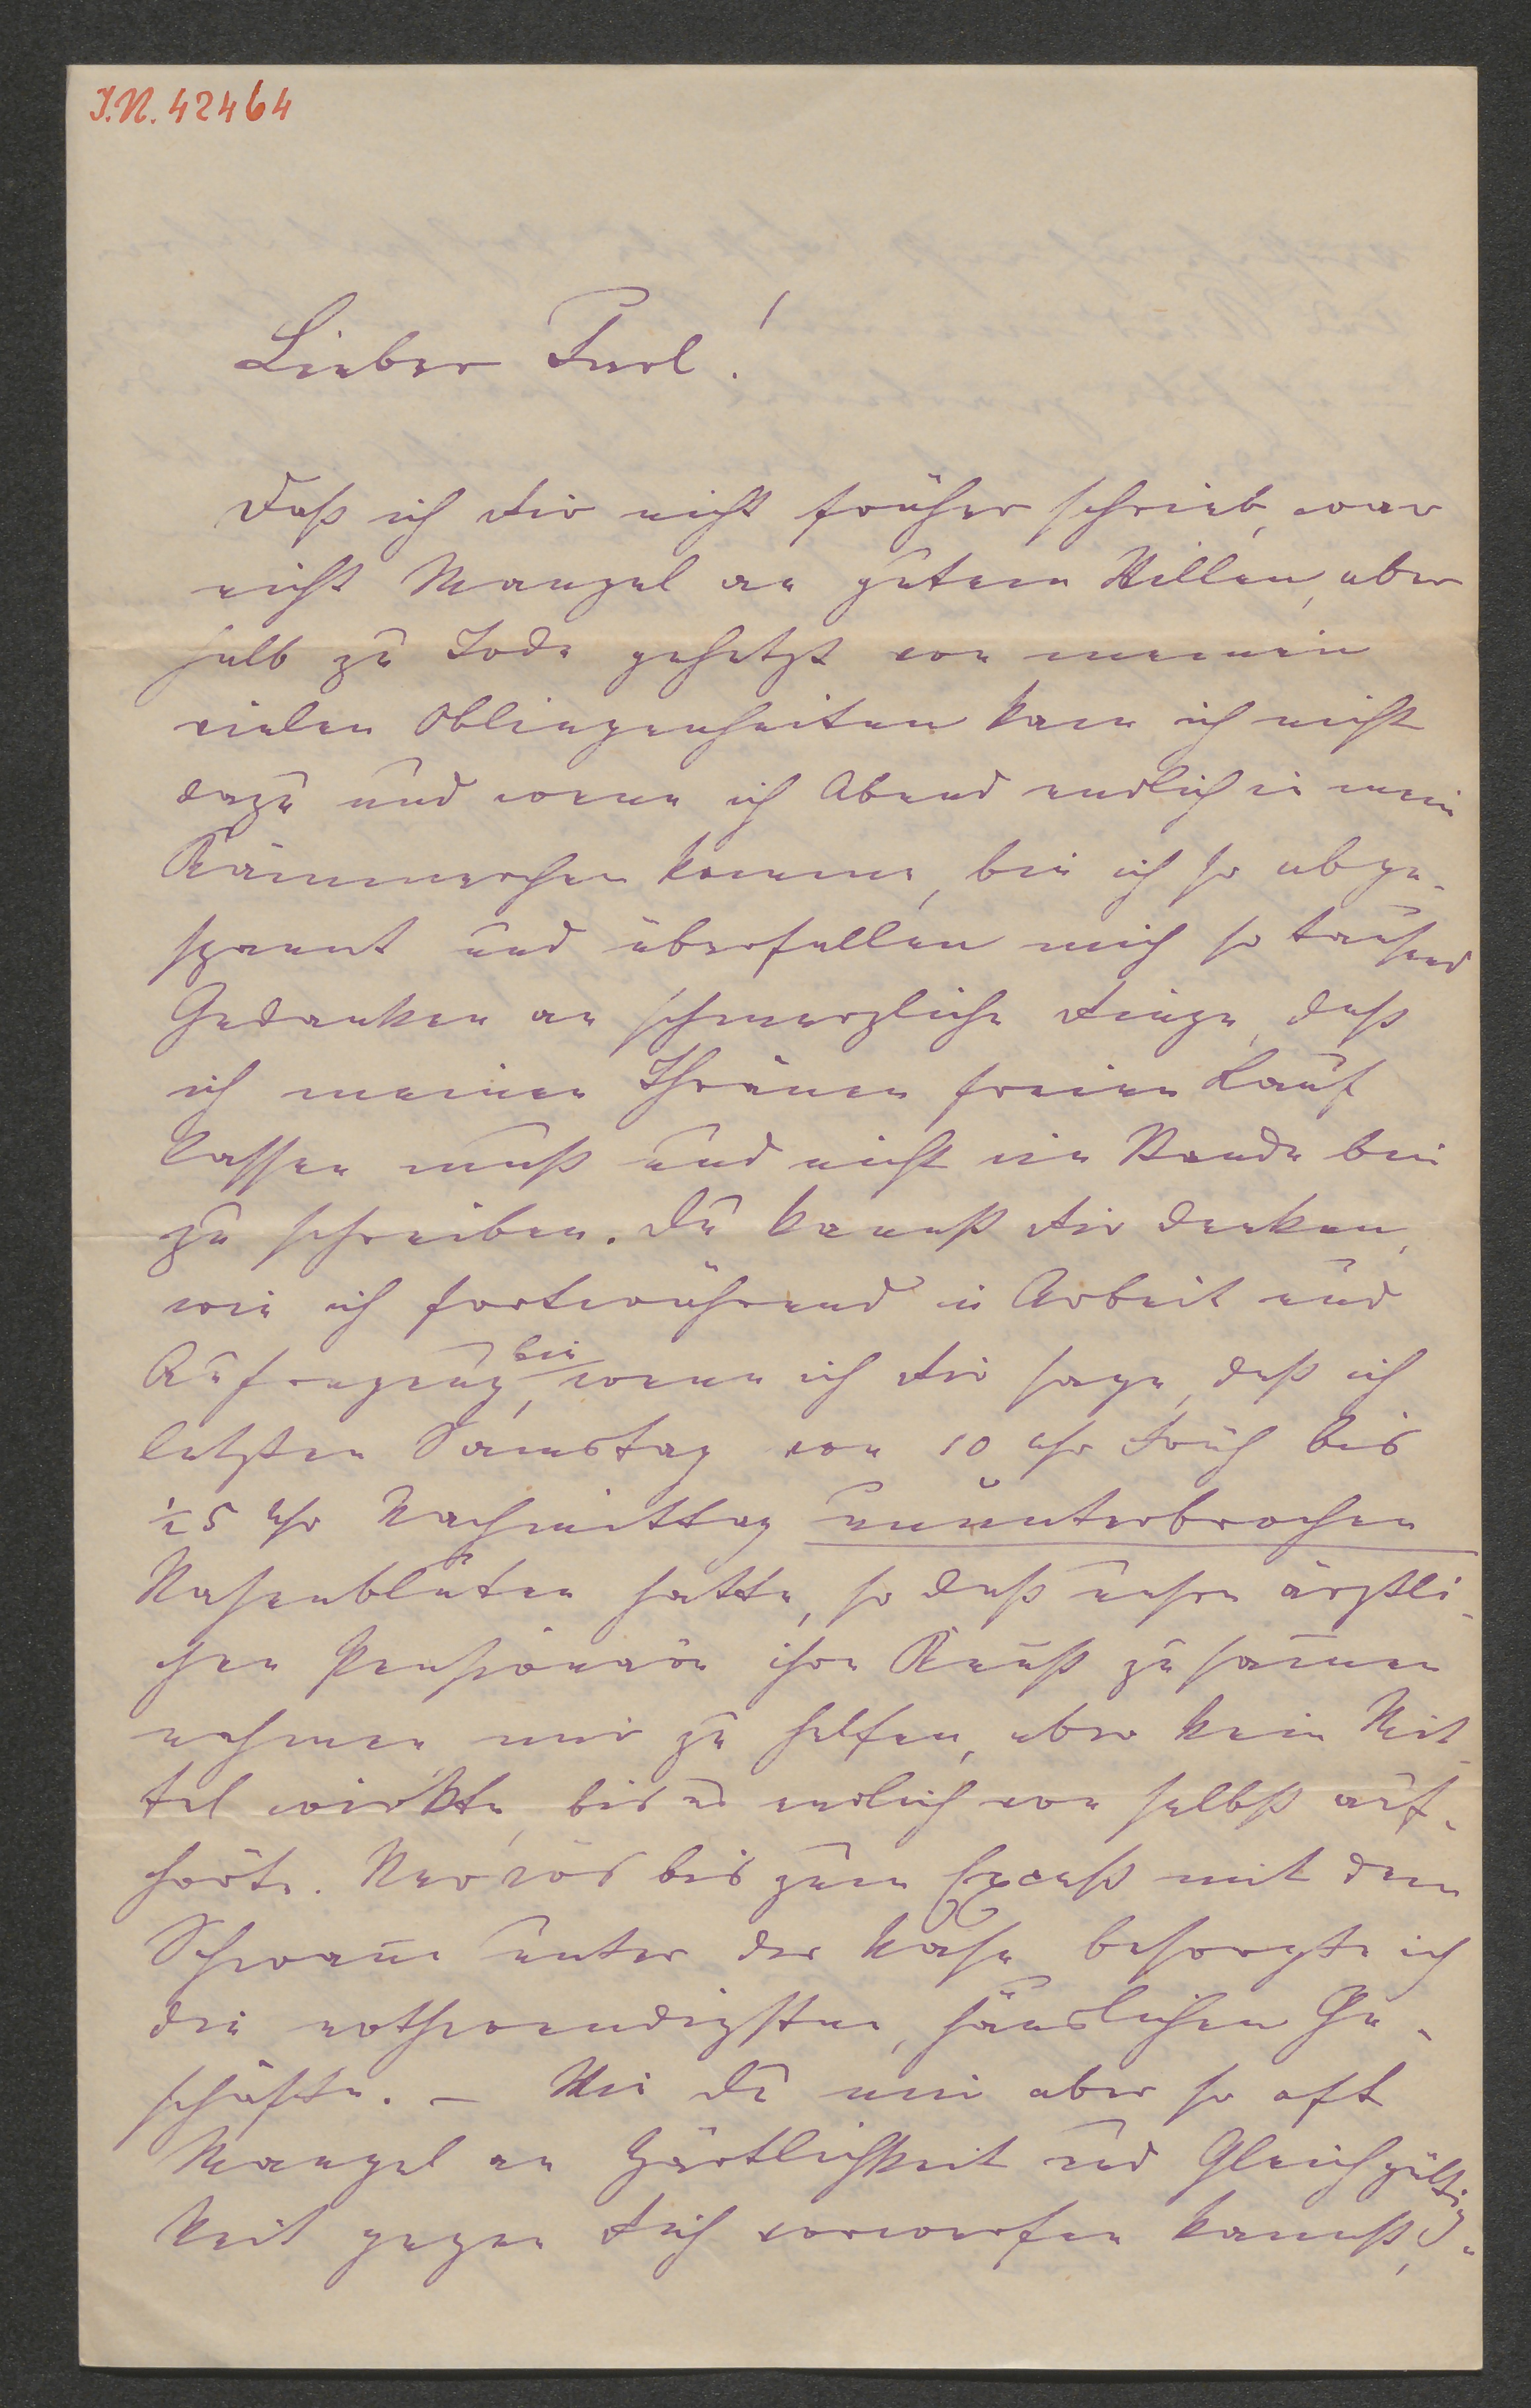 I.N. 42464
Lieber Carl!
Daß ich Dir nicht früher schrieb, war
nicht Mangel an gutem Willen, aber
halb zu Tode gehetzt von meinen
vielen Obliegenheiten kam ich nicht
dazu und wenn ich Abend endlich in mein
Kämmerchen komme, bin ich so abge-
spannt und überfallen mich so tausend
Gedanken an schmerzliche Dinge, daß
ich meinen Thränen freien Lauf
lassen muß und nicht im Stande bin
zu schreiben. Du kannst Dir denken,
wie ich fortwährend in Arbeit und
Aufregung bin, wenn ich Dir sage, daß ich
letzten Samstag von 10 Uhr Früh bis
½ 5 Uhr Nachmittag ununterbrochen
Nasenbluten hatte, so daß unsre ärztli-
chen Pensionäre ihre Kunst zusammen
nahmen mir zu helfen, aber kein Mit-
tel wirkte, bis es endlich von selbst auf-
hörte. Nervös bis zum Exceß mit dem
Schwamm unter der Nase besorgte ich
die nothwendigsten, häuslichen Ge-
schäfte. – Wie Du mir aber so oft
Mangel an Zärtlichkeit und Gleichgültig-
keit gegen Dich vorwerfen kannst,